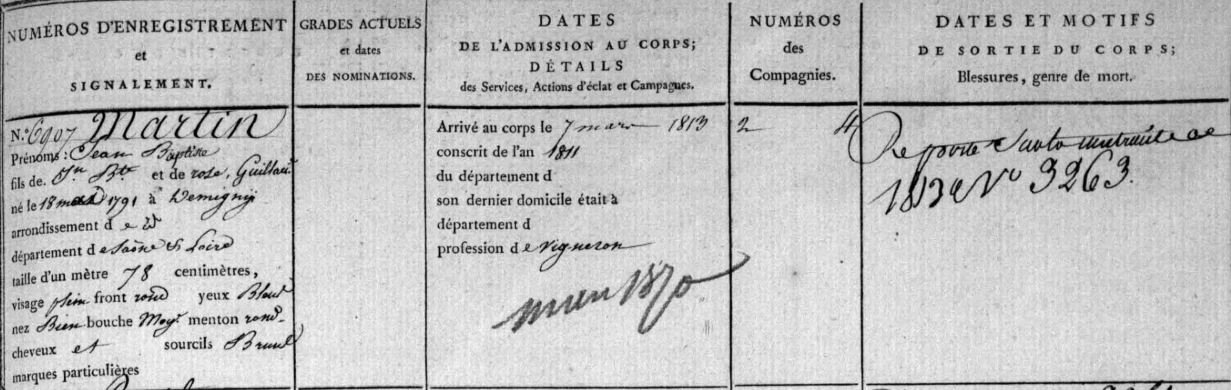 NUMÉROS D'ENREGISTREMENT
et
SIGNALEMENT.
GRADES ACTUELS
et dates
DES NOMINATIONS.
DATES
DE L'ADMISSION AU CORPS;
DÉTAILS
des Services, Actions d'éclat et Campagnes.
NUMÉROS
des
Compagnies.
DATES ET MOTIFS
DE SORTIE DU CORPS;
Blessures, genre de mort.
N.º 6907 Martin
Prénoms: Jean Baptiste
fils de Jn Bte et de rose, Guillau
né le 18 1791 à Demigny
arrondissement d e
département d e Saône & Loire
taille d'un mètre 78 centimètres,
visage plein front rond yeux Bleus
nez Bien bouche Moyne menton rond
cheveux et sourcils Bruns
marques particulières
Arrivé au corps le 7 mars 1813
conscrit de l'an 1811
du département d
son dernier domicile était à
département d
profession d e vigneron
2 4
Reporté
Nº 3263.